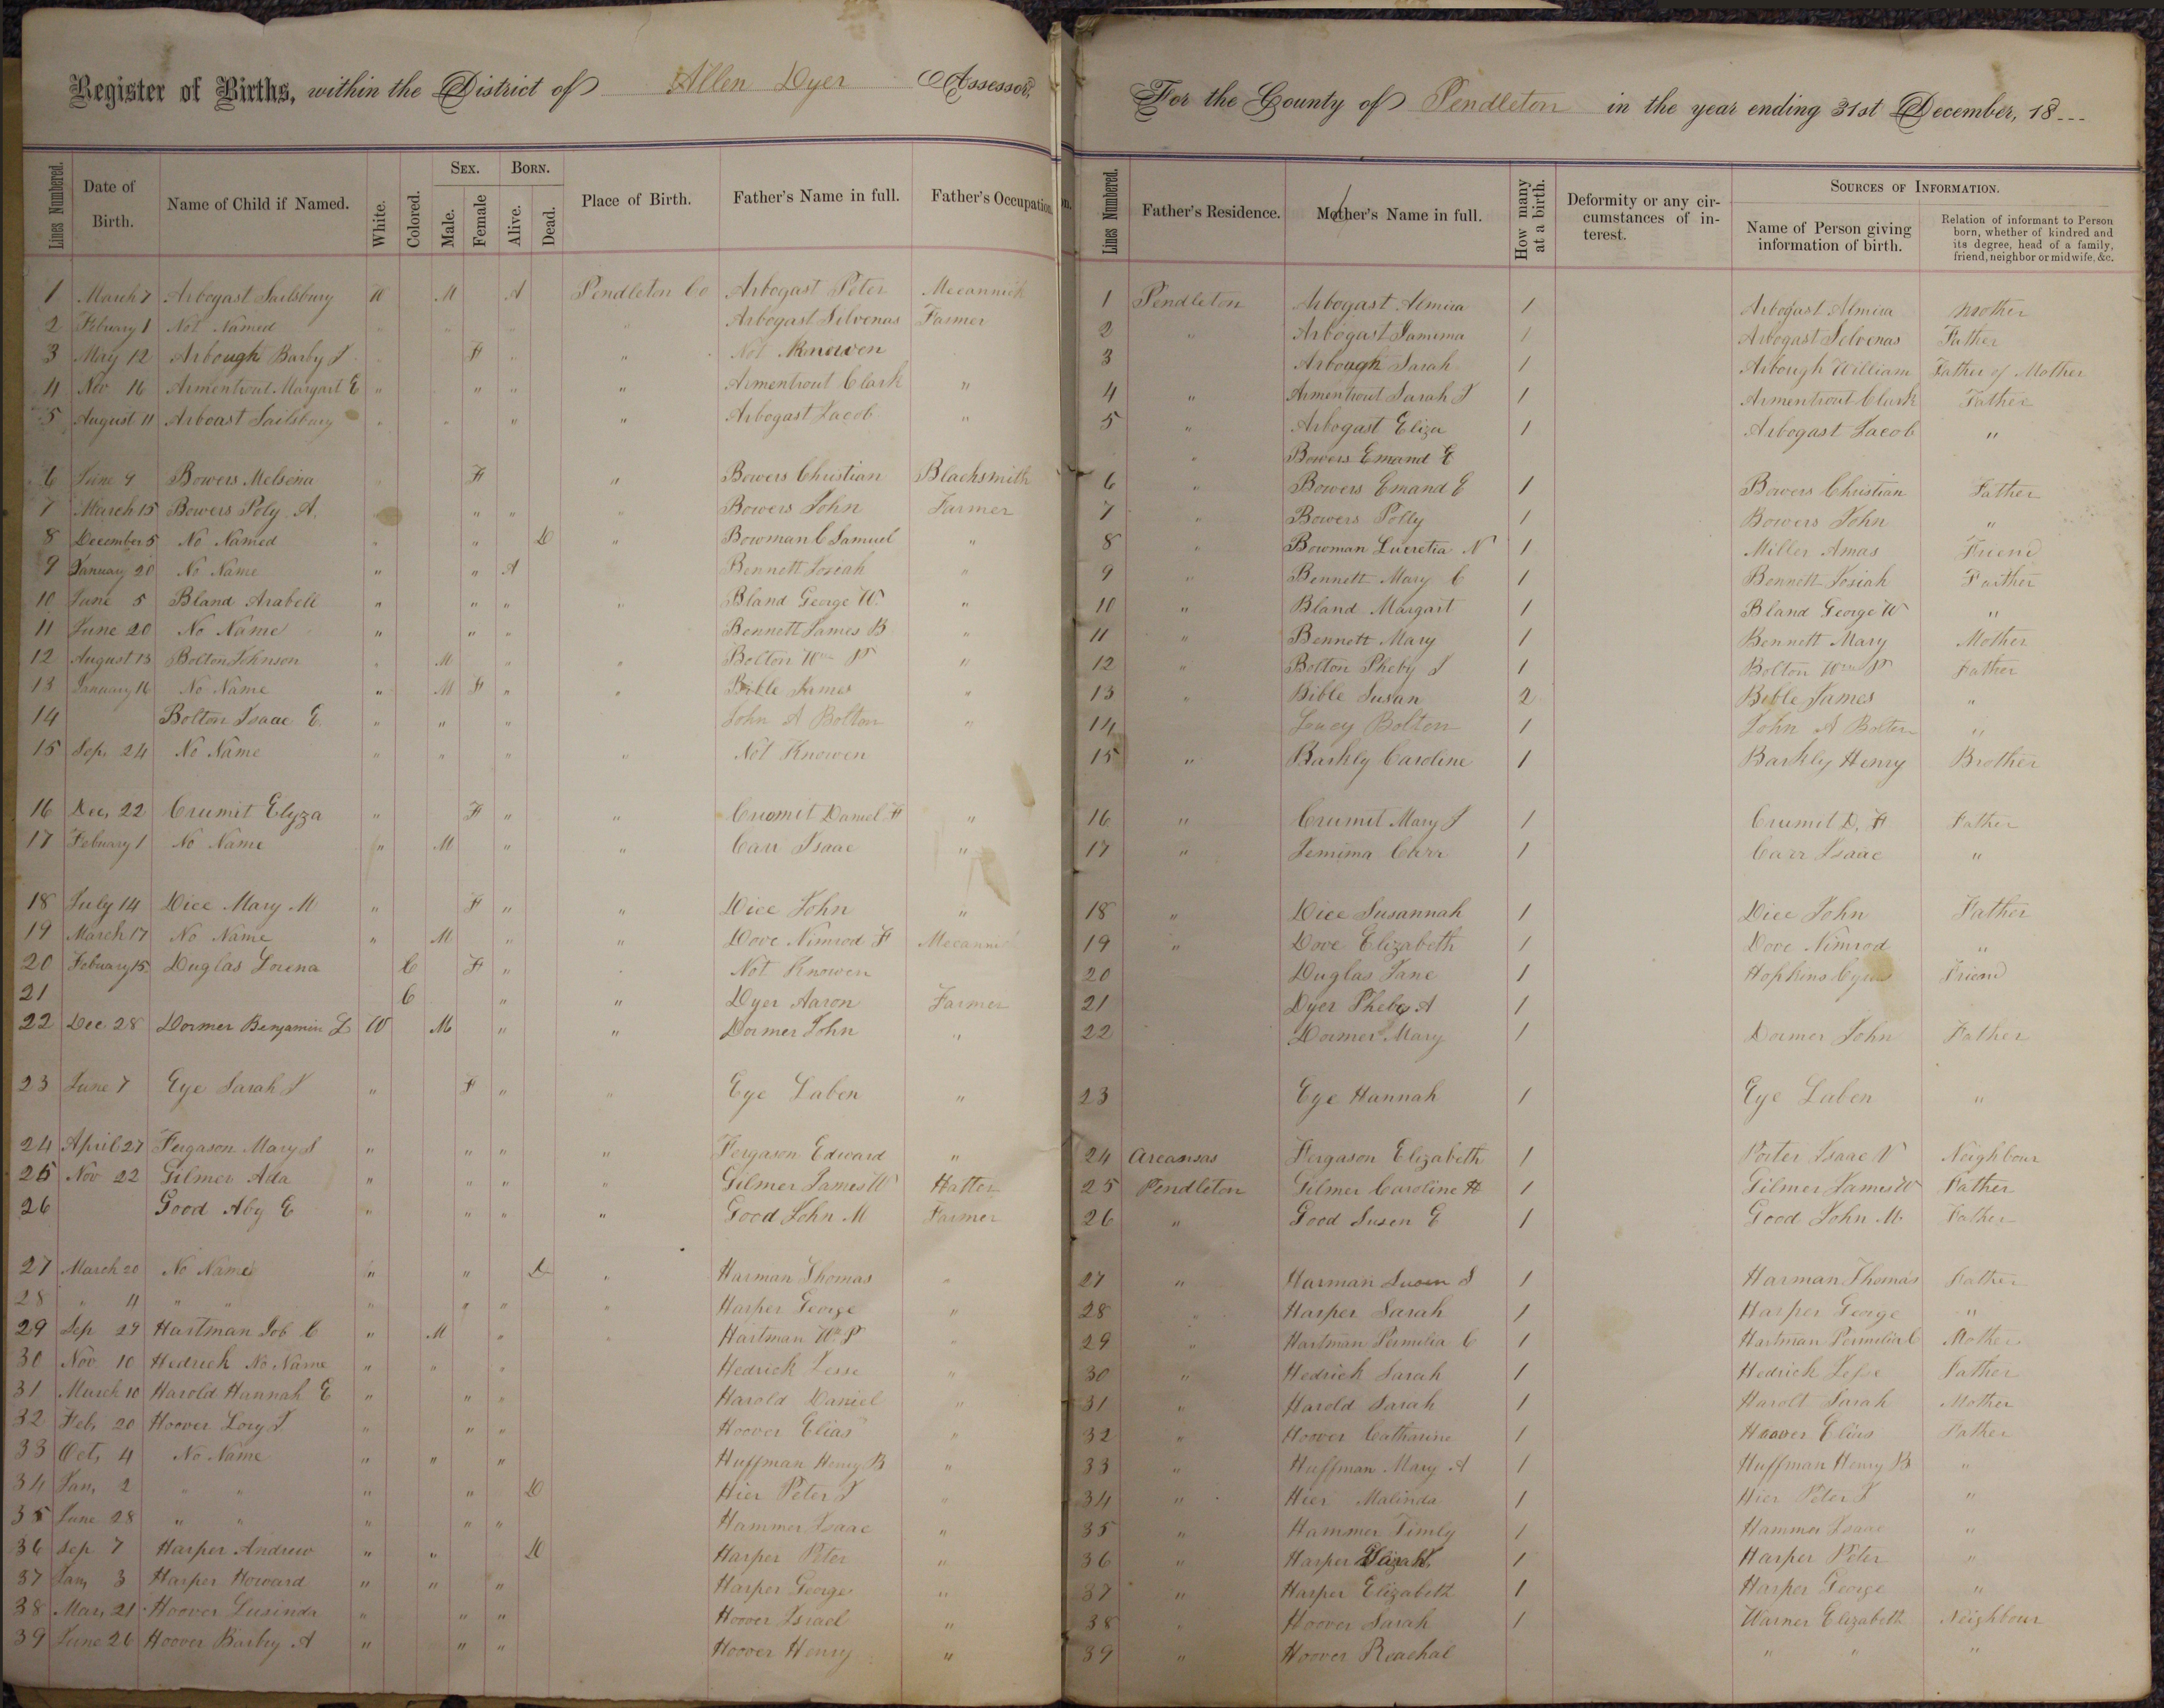 Register of Births, within the District of Allen Dyer Assessor,
Lines Numbered. Date of Birth. Name of Child if Named. White. Colored. Sex. Male. Female Born. Alive. Dead. Place of Birth. Father's Name in full. Father's Occupation.
1 March 7 Arbogast Sailsbury W M A Pendleton Co Arbogast Peter Mecannick
2 Febuary 1 Not Named " " " " Arbogast Silvenas Farmer
3 May 12 Arbough Barby J " F " " Not Knowen
4 Nov 16 Armentrout Margart E " " " " Armentrout Clark "
5 August 11 Arboast Sailsbury " " " " Arbogast Jacob "
6 June 9 Bowers Melsena " F " Bowers Christian Blacksmith
7 March 15 Bowers Poly A. " " " " Bowers John Farmer
8 December 5 No Named " " D " Bowman C Samuel "
9 January 20 No Name " " A Bennett Josiah "
10 June 5 Bland Arabell " " " " Bland George W. "
11 June 20 No Name " " " Bennett James B "
12 August 13 Bolton Johnson " M " " Bolton Wm P "
13 January 16 No Name " M F " " Bible James "
14 Bolton Isaac E. " " " John A Bolton "
15 Sep. 24 No Name " " " " Not Knowen
16 Dec, 22 Crumit Elyza " F " " Cruomit Daniel F "
17 Febuary 1 No Name " M " " Carr Isaac "
18 July 14 Dice Mary M " F " " Dice John "
19 March 17 No Name " M " " Dove Nimrod F Mecannick
20 Febuary 15 Duglas Lorena C F " " Not Knowen
21 C " " Dyer Aaron Farmer
22 Dec 28 Dormer Benjamin L W M " " Dormer John "
23 June 7 Eye Sarah J " F " " Eye Laben "
24 April 27 Fergason Mary S " " " " Fergason Edward "
25 Nov 22 Gilmer Ada " " " " Gilmer James W Hatter
26 Good Aby E " " " " Good John M Farmer
27 March 20 No Name " " D " Harman Thomas "
28 " 4 " " " " " " Harper George "
29 Sep 29 Hartman Job C " M " " Hartman Wm P "
30 Nov 10 Hedrick No Name " " " Hedrick Jesse "
31 March 10 Harold Hannah E " " " Harold Daniel "
32 Feb, 20 Hoover Lory J " " " Hoover Elias "
33 Oct, 4 No Name " " " Huffman Henry B "
34 Jan, 2 " " " " D Hier Peter J "
35 June 28 " " " " " Hammer Isaac "
36 Sep 7 Harper Andrew " " D Harper Peter "
37 Jan, 3 Harper Howard " " " Harper George "
38 Mar, 21 Hoover Lusinda " " " Hoover Israel "
39 June 26 Hoover Barbry A " " " Hoover Henry "
For the County of Pendleton in the year ending 31st December, 18
Lines Numbered. Father's Residence. Mother's Name in full. How many at a birth. Deformity or any circumstances of interest. Sources of Information. Name of Person giving information of birth. Relation of informant to Person born, whether of kindred and its degree, head of a family, friend, neighbor or midwife, &c.
1 Pendleton Arbogast Almira 1 Arbogast Almira Mother
2 " Arbogast Jamima 1 Arbogast Selvenas Father
3 Arbough Sarah 1 Arbough William Father of Mother
4 " Armentrout Sarah J 1 Armentrout Clark Father
5 " Arbogast Eliza 1 Arbogast Jacob "
" Bowers Emand E
6 " Bowers Emand E 1 Bowers Christian Father
7 " Bowers Polly 1 Bowers John "
8 " Bowman Lucretia N 1 Miller Amas Friend
9 " Bennett Mary C 1 Bennett Josiah Farther
10 " Bland Margart 1 Bland George W "
11 " Bennett Mary 1 Bennett Mary Mother
12 " Bolton Pheby J 1 Bolton Wm P Father
13 " Bible Susan 2 Bible James "
14 Lucy Bolton 1 John A Bolton "
15 " Barkly Caroline 1 Barkly Henry Brother
16 " Crumit Mary J 1 Crumit D, F Father
17 " Jemima Carr 1 Carr Isaac "
18 " Dice Susannah 1 Dice John Father
19 " Dove Elizabeth 1 Dove Nimrod "
20 Duglas Jane 1 Hopkins Cyrus Friend
21 Dyer Pheby A 1
22 Dormer Mary 1 Dormer John Father
23 Eye Hannah 1 Eye Laben "
24 Arcansas Fergason Elizabeth 1 Porter Isaac N Neighbour
25 Pendleton Gilmer Caroline H 1 Gilmer James W Father
26 " Good Susen E 1 Good John M. Father
27 " Harman Susen S 1 Harman Thomas Father
28 " Harper Sarah 1 Harper George "
29 " Hartman Permelia C 1 Hartman Permelia C Mother
30 " Hedrick Sarah 1 Hedrick Jesse Father
31 " Harold Sarah 1 Harolt Sarah Mother
32 " Hoover Catharine 1 Hoover Elias Father
33 " Huffman Mary A 1 Huffman Henry B "
34 " Hier Malinda 1 Hier Peter J "
35 " Hammer Timly 1 Hammer Isaac "
36 " Harper 1 Harper Peter "
37 " Harper Elizabeth 1 Harper George "
38 " Hoover Sarah 1 Warner Elizabeth Neighbour
39 " Hoover Reachal " " "